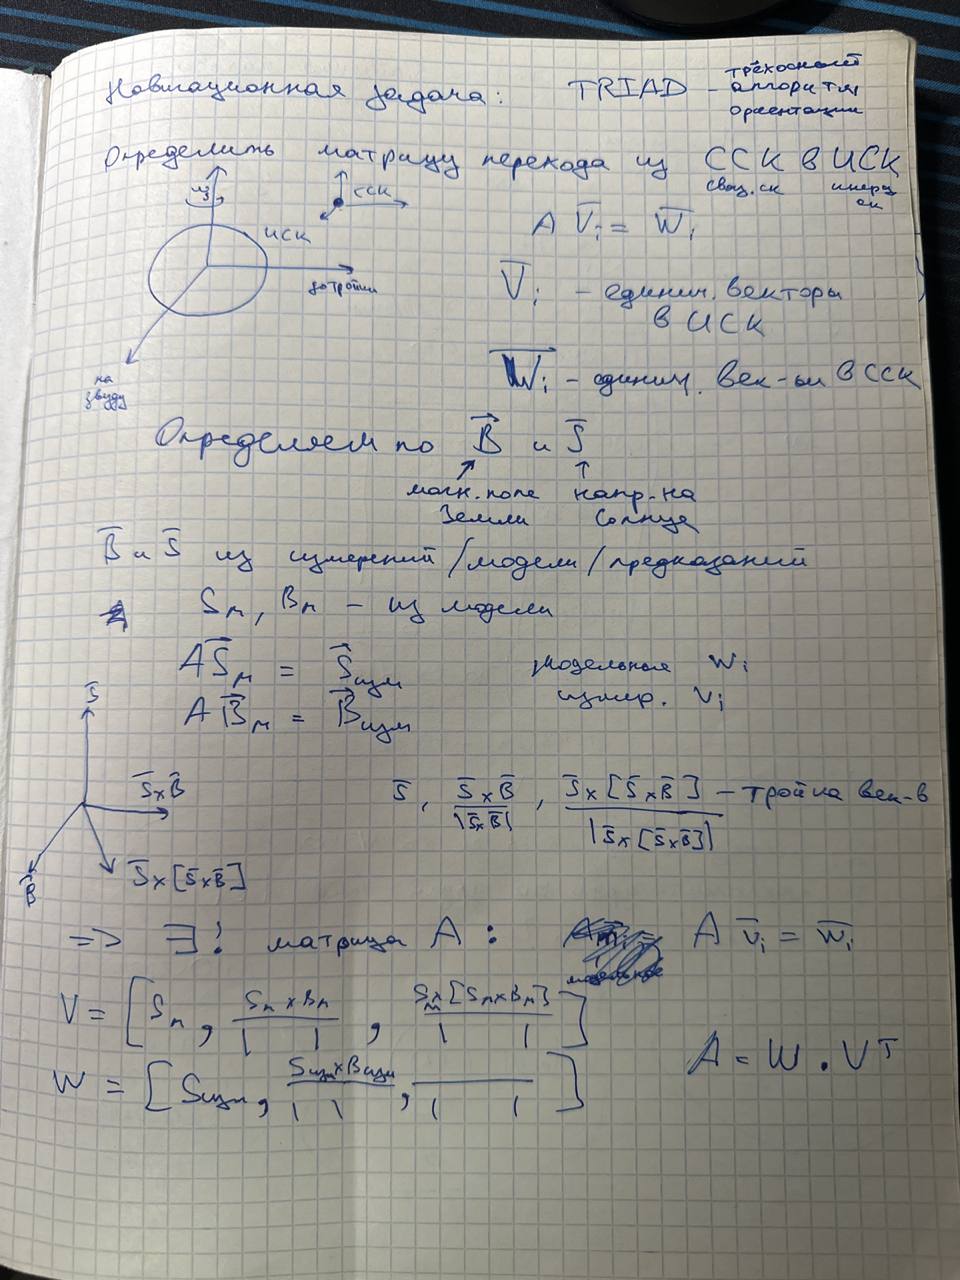 Навигационная задача: TRIAD – трёхосный
алгоритм
ориентации
Определить матрицу перехода из ССК в ИСК
связ. ск инерц
ск
ССК
ИСК
на
звезду
A V̅ᵢ = W̅ᵢ
V̅ᵢ – единич. векторы
в ИСК
W̅ᵢ – единич. век-ы в ССК
Определяем по B⃗ и S̅
магн. поле напр. на
Земли Солнце
B̅ и S̅ из измерений / модели / предсказаний
Sₘ, Bₘ – из модели
A S⃗ₘ = S⃗изм
A B⃗ₘ = B⃗изм
модельные wᵢ
измер. vᵢ
S̅
S̅×B̅
S̅×[S̅×B̅]
B̅
S̅, S̅×B̅ / |S̅×B̅|, S̅×[S̅×B̅] / |S̅×[S̅×B̅]| – тройка век-в
=> ∃! матрица A: A v̅ᵢ = w̅ᵢ
V = [Sₘ, Sₘ×Bₘ / | |, Sₘ×[Sₘ×Bₘ] / | |]
W = [Sизм, Sизм×Bизм / | |, — / | |]
A = W · Vᵀ